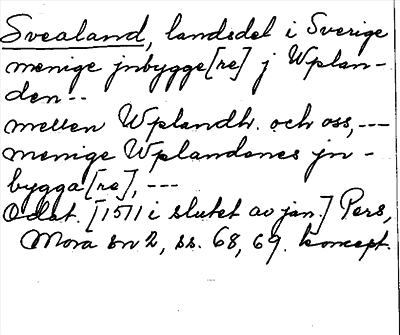 Svealand, landsdel i Sverige
menige jnbygge[re] j Wplan-
den--
mellen Wplandh. och oss,---
menige Wplandenes jn-
bygga[re], ---
Odat. [1511 i slutet av jan.] Pers,
Mora sn 2, ss. 68, 69. koncept.